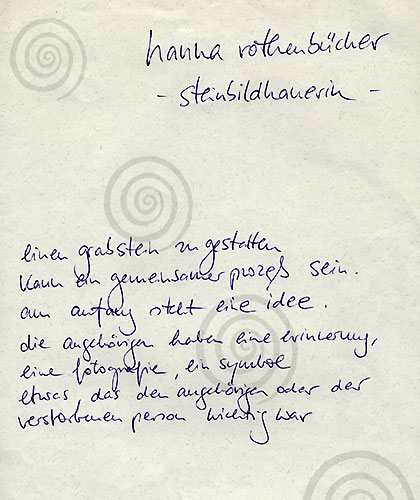 hanna rothenbücher
- steinbildhauerin -
einen grabstein zu gestalten
kann ein gemeinsamer prozeß sein.
am anfang steht eine idee.
die angehörigen haben eine erinnerung,
eine fotografie, ein symbol
etwas, das den angehörigen oder der
verstorbenen person wichtig war